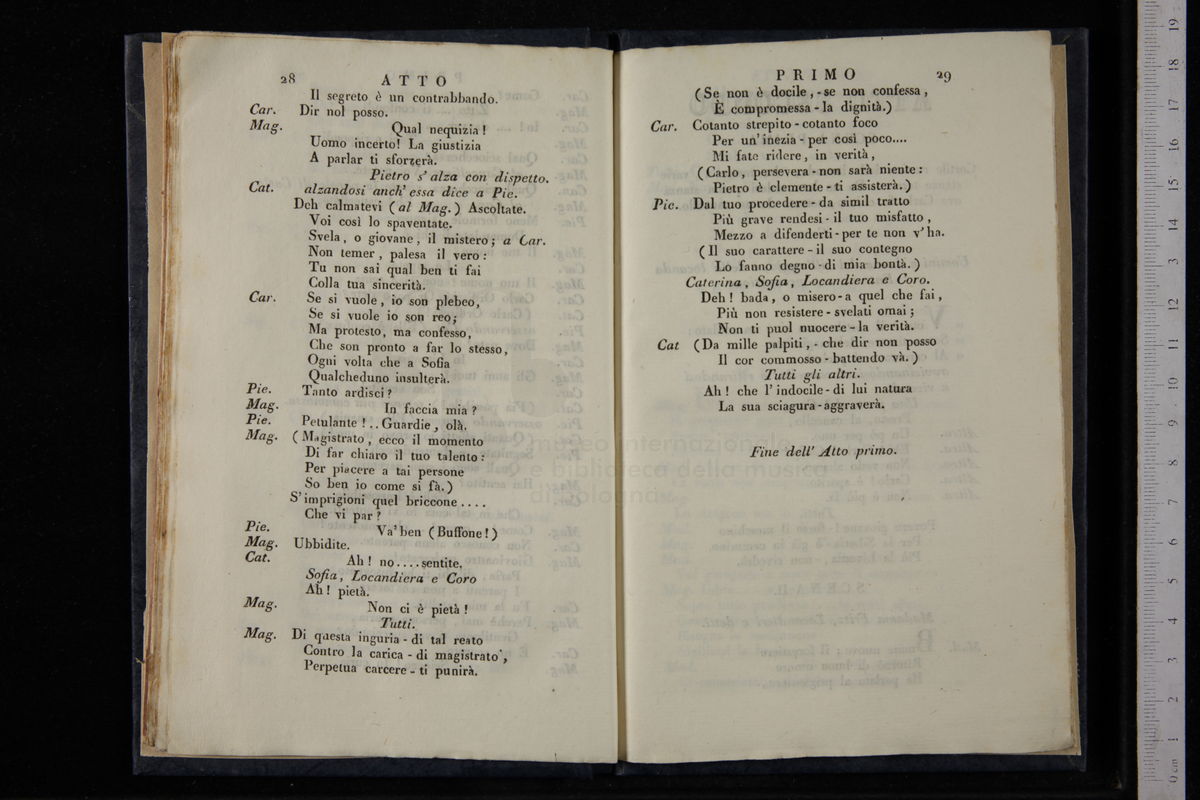 28 ATTO
Il segreto è un contrabbando.
Car. Dir nol posso.
Mag. Qual nequizia !
Uomo incerto! La giustizia
A parlar ti sforzerà.
Pietro s' alza con dispetto.
Cat. alzandosi anch' essa dice a Pie.
Deh calmatevi ( al Mag. ) Ascoltate.
Voi così lo spaventate.
Svela, o giovane, il mistero; a Car.
Non temer, palesa il vero :
Tu non sai qual ben ti fai
Colla tua sincerità.
Car. Se si vuole, io son plebeo,
Se si vuole io son reo;
Ma protesto, ma confesso,
Che son pronto a far lo stesso,
Ogni volta che a Sofia
Qualcheduno insulterà.
Pie. Tanto ardisci ?
Mag. In faccia mia ?
Pie. Petulante ! .. Guardie, olà.
Mag. ( Magistrato, ecco il momento
Di far chiaro il tuo talento :
Per piacere a tai persone
So ben io come si fà.)
S' imprigioni quel briccone ....
Che vi par ?
Pie. Va' ben ( Buffone ! )
Mag. Ubbidite.
Cat. Ah ! no .... sentite.
Sofia, Locandiera e Coro
Ah ! pietà.
Mag. Non ci è pietà !
Tutti.
Mag. Di questa inguria - di tal reato
Contro la carica - di magistrato,
Perpetua carcere - ti punirà.
PRIMO 29
( Se non è docile, - se non confessa,
È compromessa - la dignità.)
Car. Cotanto strepito - cotanto foco
Per un' inezia - per così poco....
Mi fate ridere, in verità,
( Carlo, persevera - non sarà niente :
Pietro è clemente - ti assisterà. )
Pie. Dal tuo procedere - da simil tratto
Più grave rendesi - il tuo misfatto,
Mezzo a difenderti - per te non v' ha.
( Il suo carattere - il suo contegno
Lo fanno degno - di mia bontà. )
Caterina, Sofia, Locandiera e Coro.
Deh ! bada, o misero - a quel che fai,
Più non resistere - svelati omai ;
Non ti puol nuocere - la verità.
Cat ( Da mille palpiti, - che dir non posso
Il cor commosso - battendo và. )
Tutti gli altri.
Ah ! che l' indocile - di lui natura
La sua sciagura - aggraverà.
Fine dell' Atto primo.
museo internazionale
biblioteca della musica
di bologna
0 cm 1 2 3 4 5 6 7 8 9 10 11 12 13 14 15 16 17 18 19